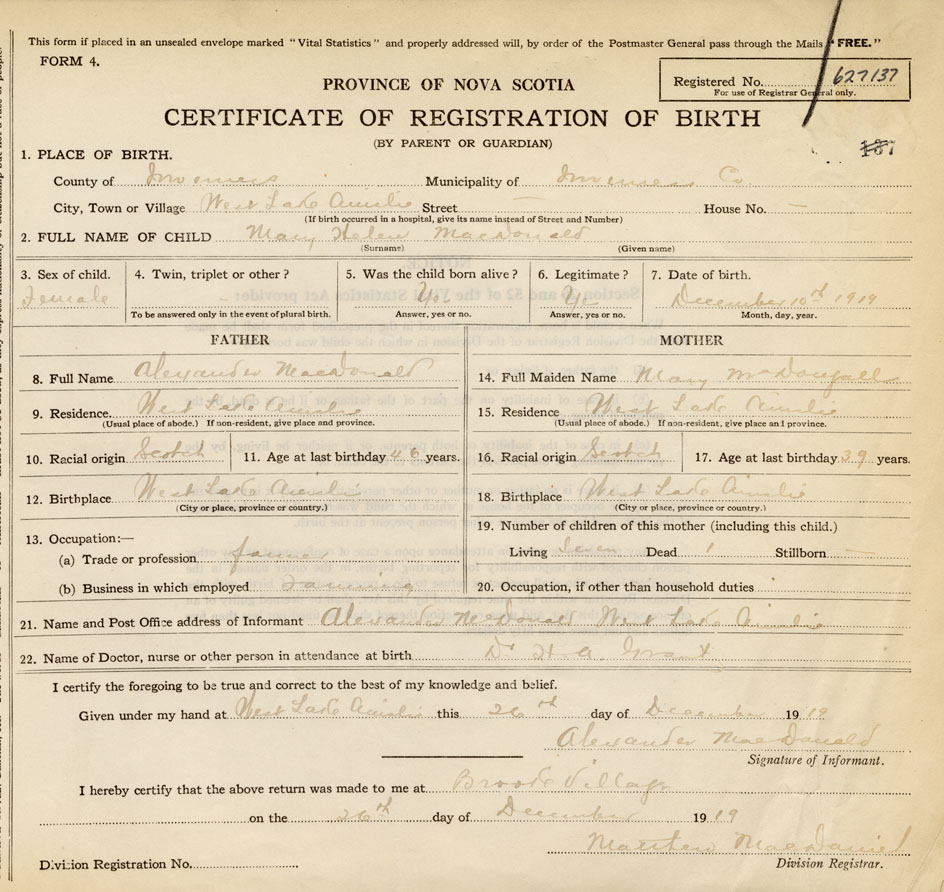 This form if placed in an unsealed envelope marked "Vital Statistics" and properly addressed will, by order of the Postmaster General pass through the Mails "FREE."
FORM 4.
Registered No. 627137
For use of Registrar General only.
PROVINCE OF NOVA SCOTIA
CERTIFICATE OF REGISTRATION OF BIRTH
(BY PARENT OR GUARDIAN)
187
1. PLACE OF BIRTH.
County of Inverness Municipality of Inverness Co.
City, Town or Village West Lake Ainslie Street — House No. —
(If birth occurred in a hospital, give its name instead of Street and Number)
2. FULL NAME OF CHILD Mary Helen MacDonald
(Surname) (Given name)
3. Sex of child. 4. Twin, triplet or other? 5. Was the child born alive? 6. Legitimate? 7. Date of birth.
Female – Yes Yes December 10th 1919
To be answered only in the event of plural birth. Answer, yes or no. Answer, yes or no. Month, day, year.
FATHER MOTHER
8. Full Name Alexander MacDonald 14. Full Maiden Name Mary McDougall
9. Residence. West Lake Ainslie 15. Residence West Lake Ainslie
(Usual place of abode.) If non-resident, give place and province. (Usual place of abode.) If non-resident, give place and province.
10. Racial origin Scotch 11. Age at last birthday 46 years. 16. Racial origin Scotch 17. Age at last birthday 39 years.
12. Birthplace West Lake Ainslie 18. Birthplace West Lake Ainslie
(City or place, province or country.) (City or place, province or country.)
13. Occupation:— 19. Number of children of this mother (including this child.)
(a) Trade or profession farmer Living Seven Dead 1 Stillborn —
(b) Business in which employed Farming 20. Occupation, if other than household duties
21. Name and Post Office address of Informant Alexander McDonald West Lake Ainslie
22. Name of Doctor, nurse or other person in attendance at birth Dr H. A. Grant
I certify the foregoing to be true and correct to the best of my knowledge and belief.
Given under my hand at West Lake Ainslie this 26th day of December 1919
Alexander MacDonald
Signature of Informant.
I hereby certify that the above return was made to me at Brook Village
on the 26th day of December 1919
Matthew MacDaniel
Division Registration No. Division Registrar.